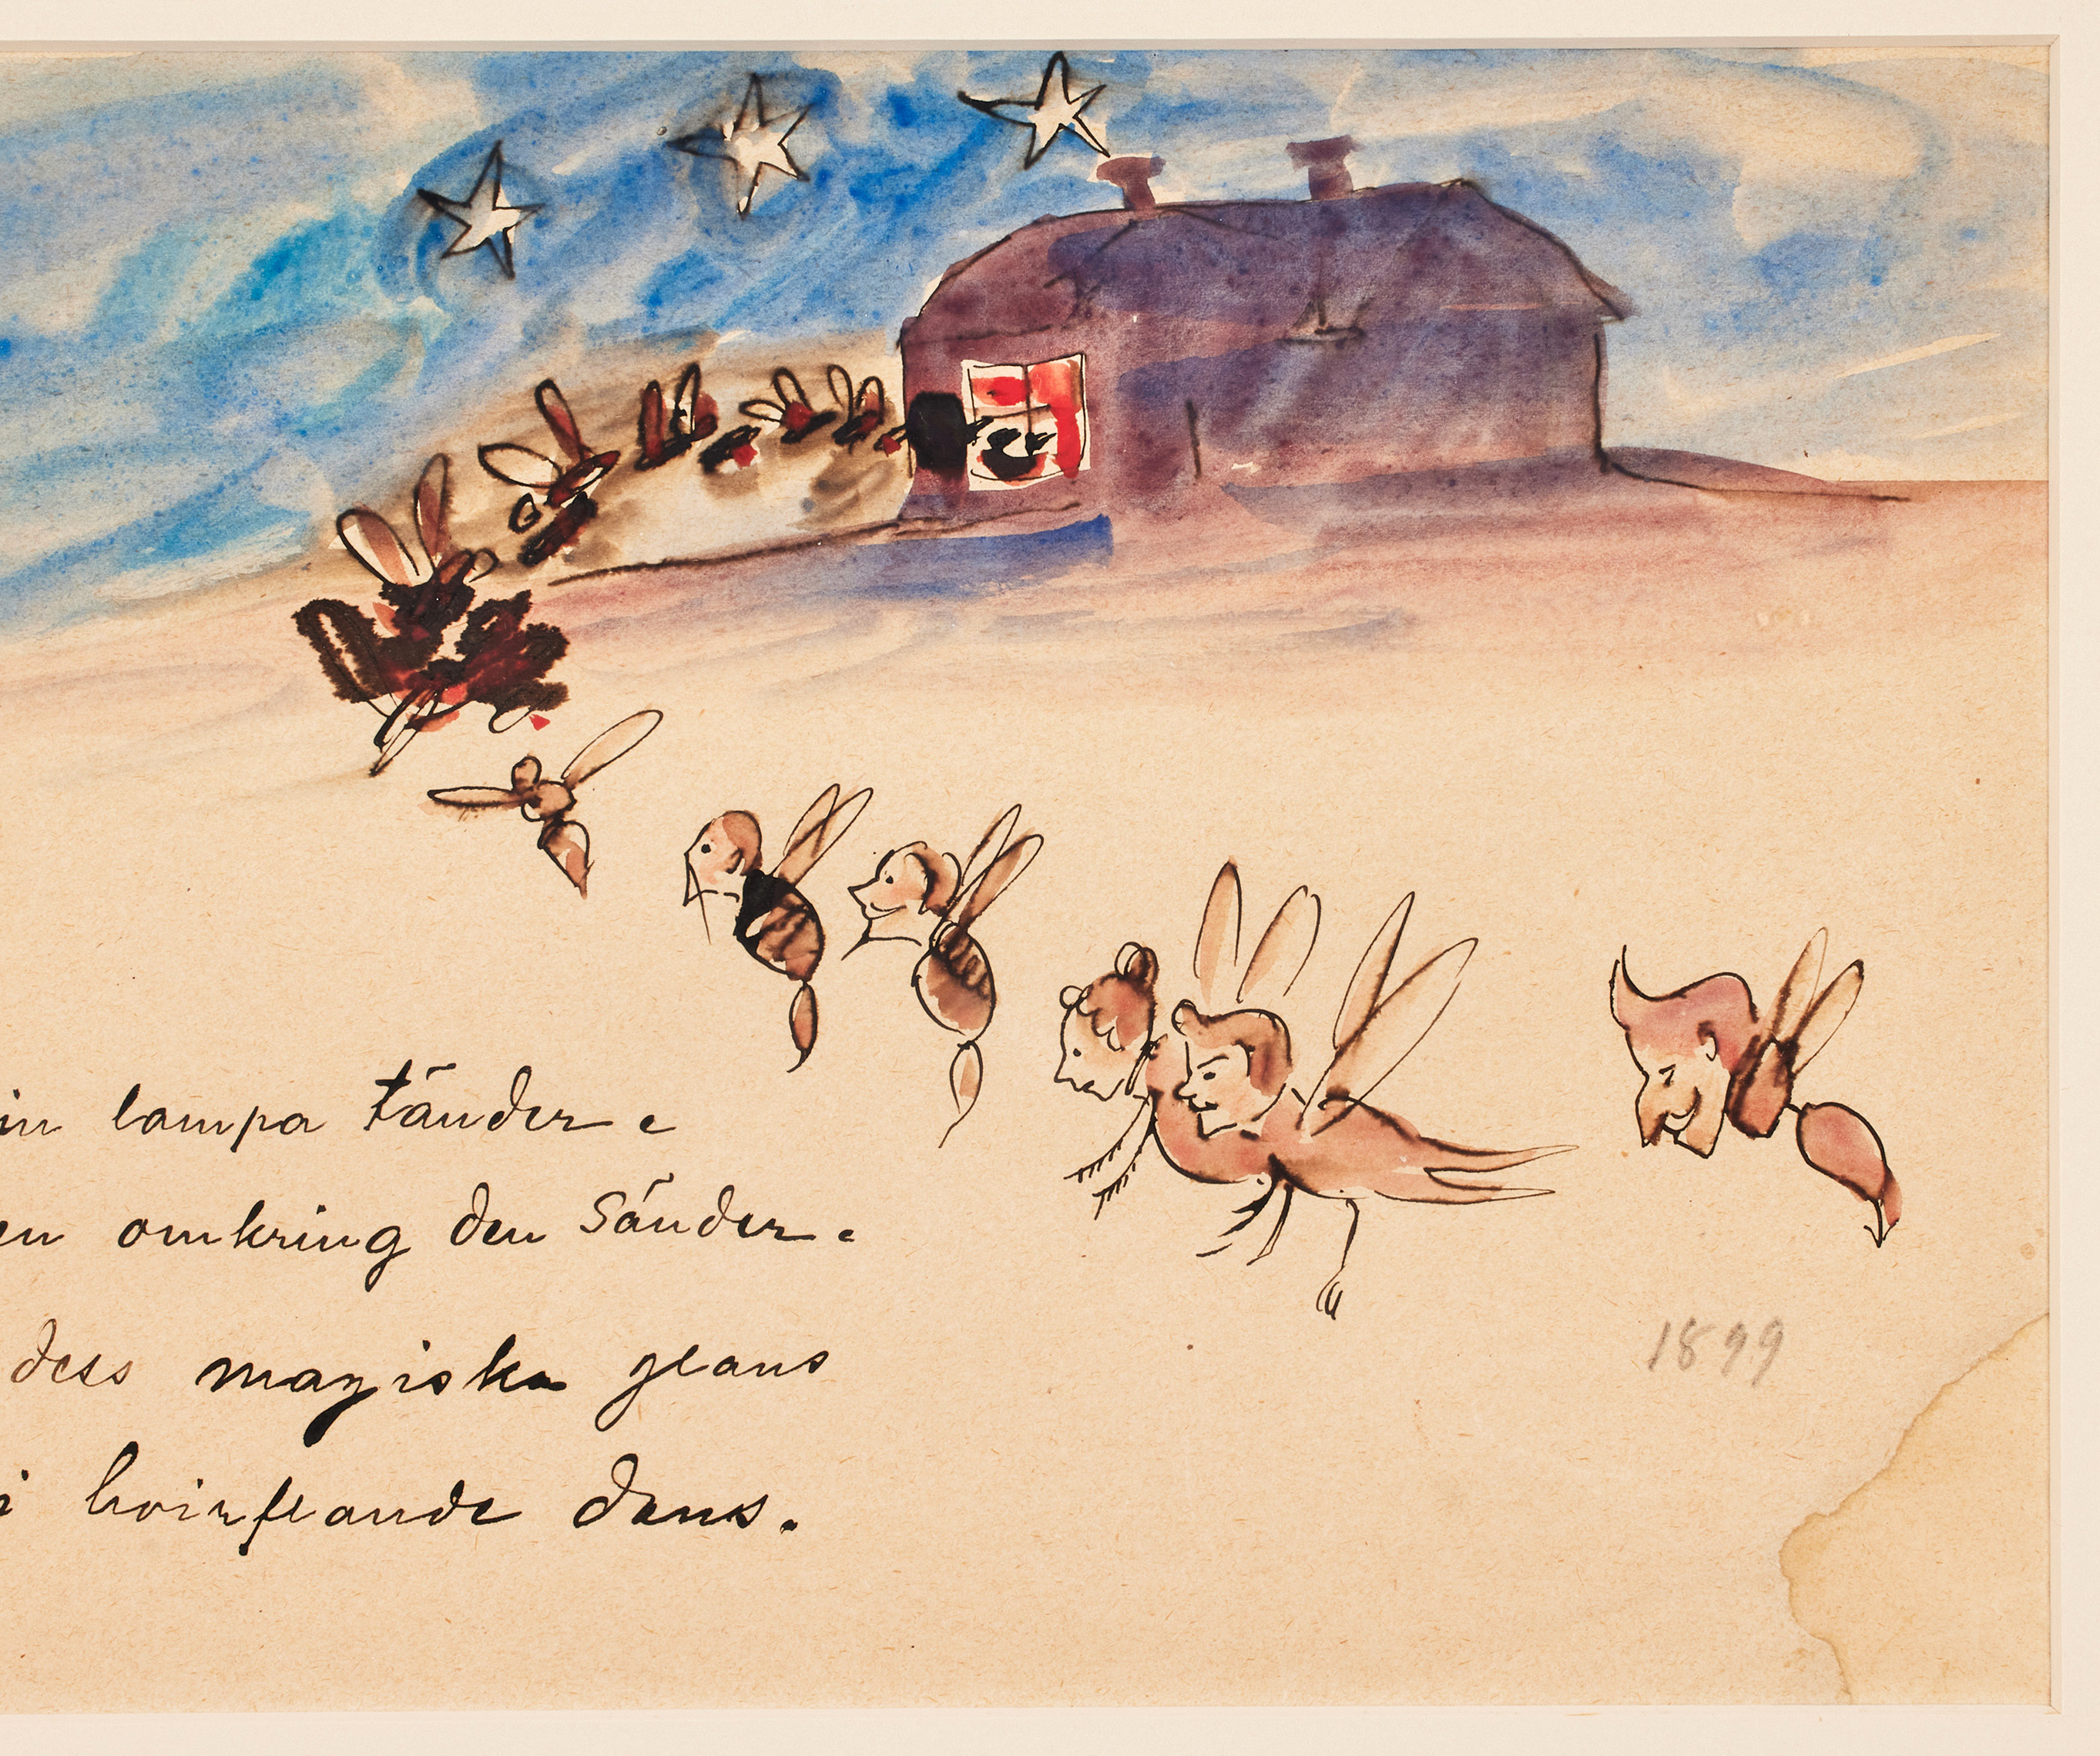 in lampa tänder.
en omkring den sänder.
dess magiska glans
i hvirflande dans.
1899